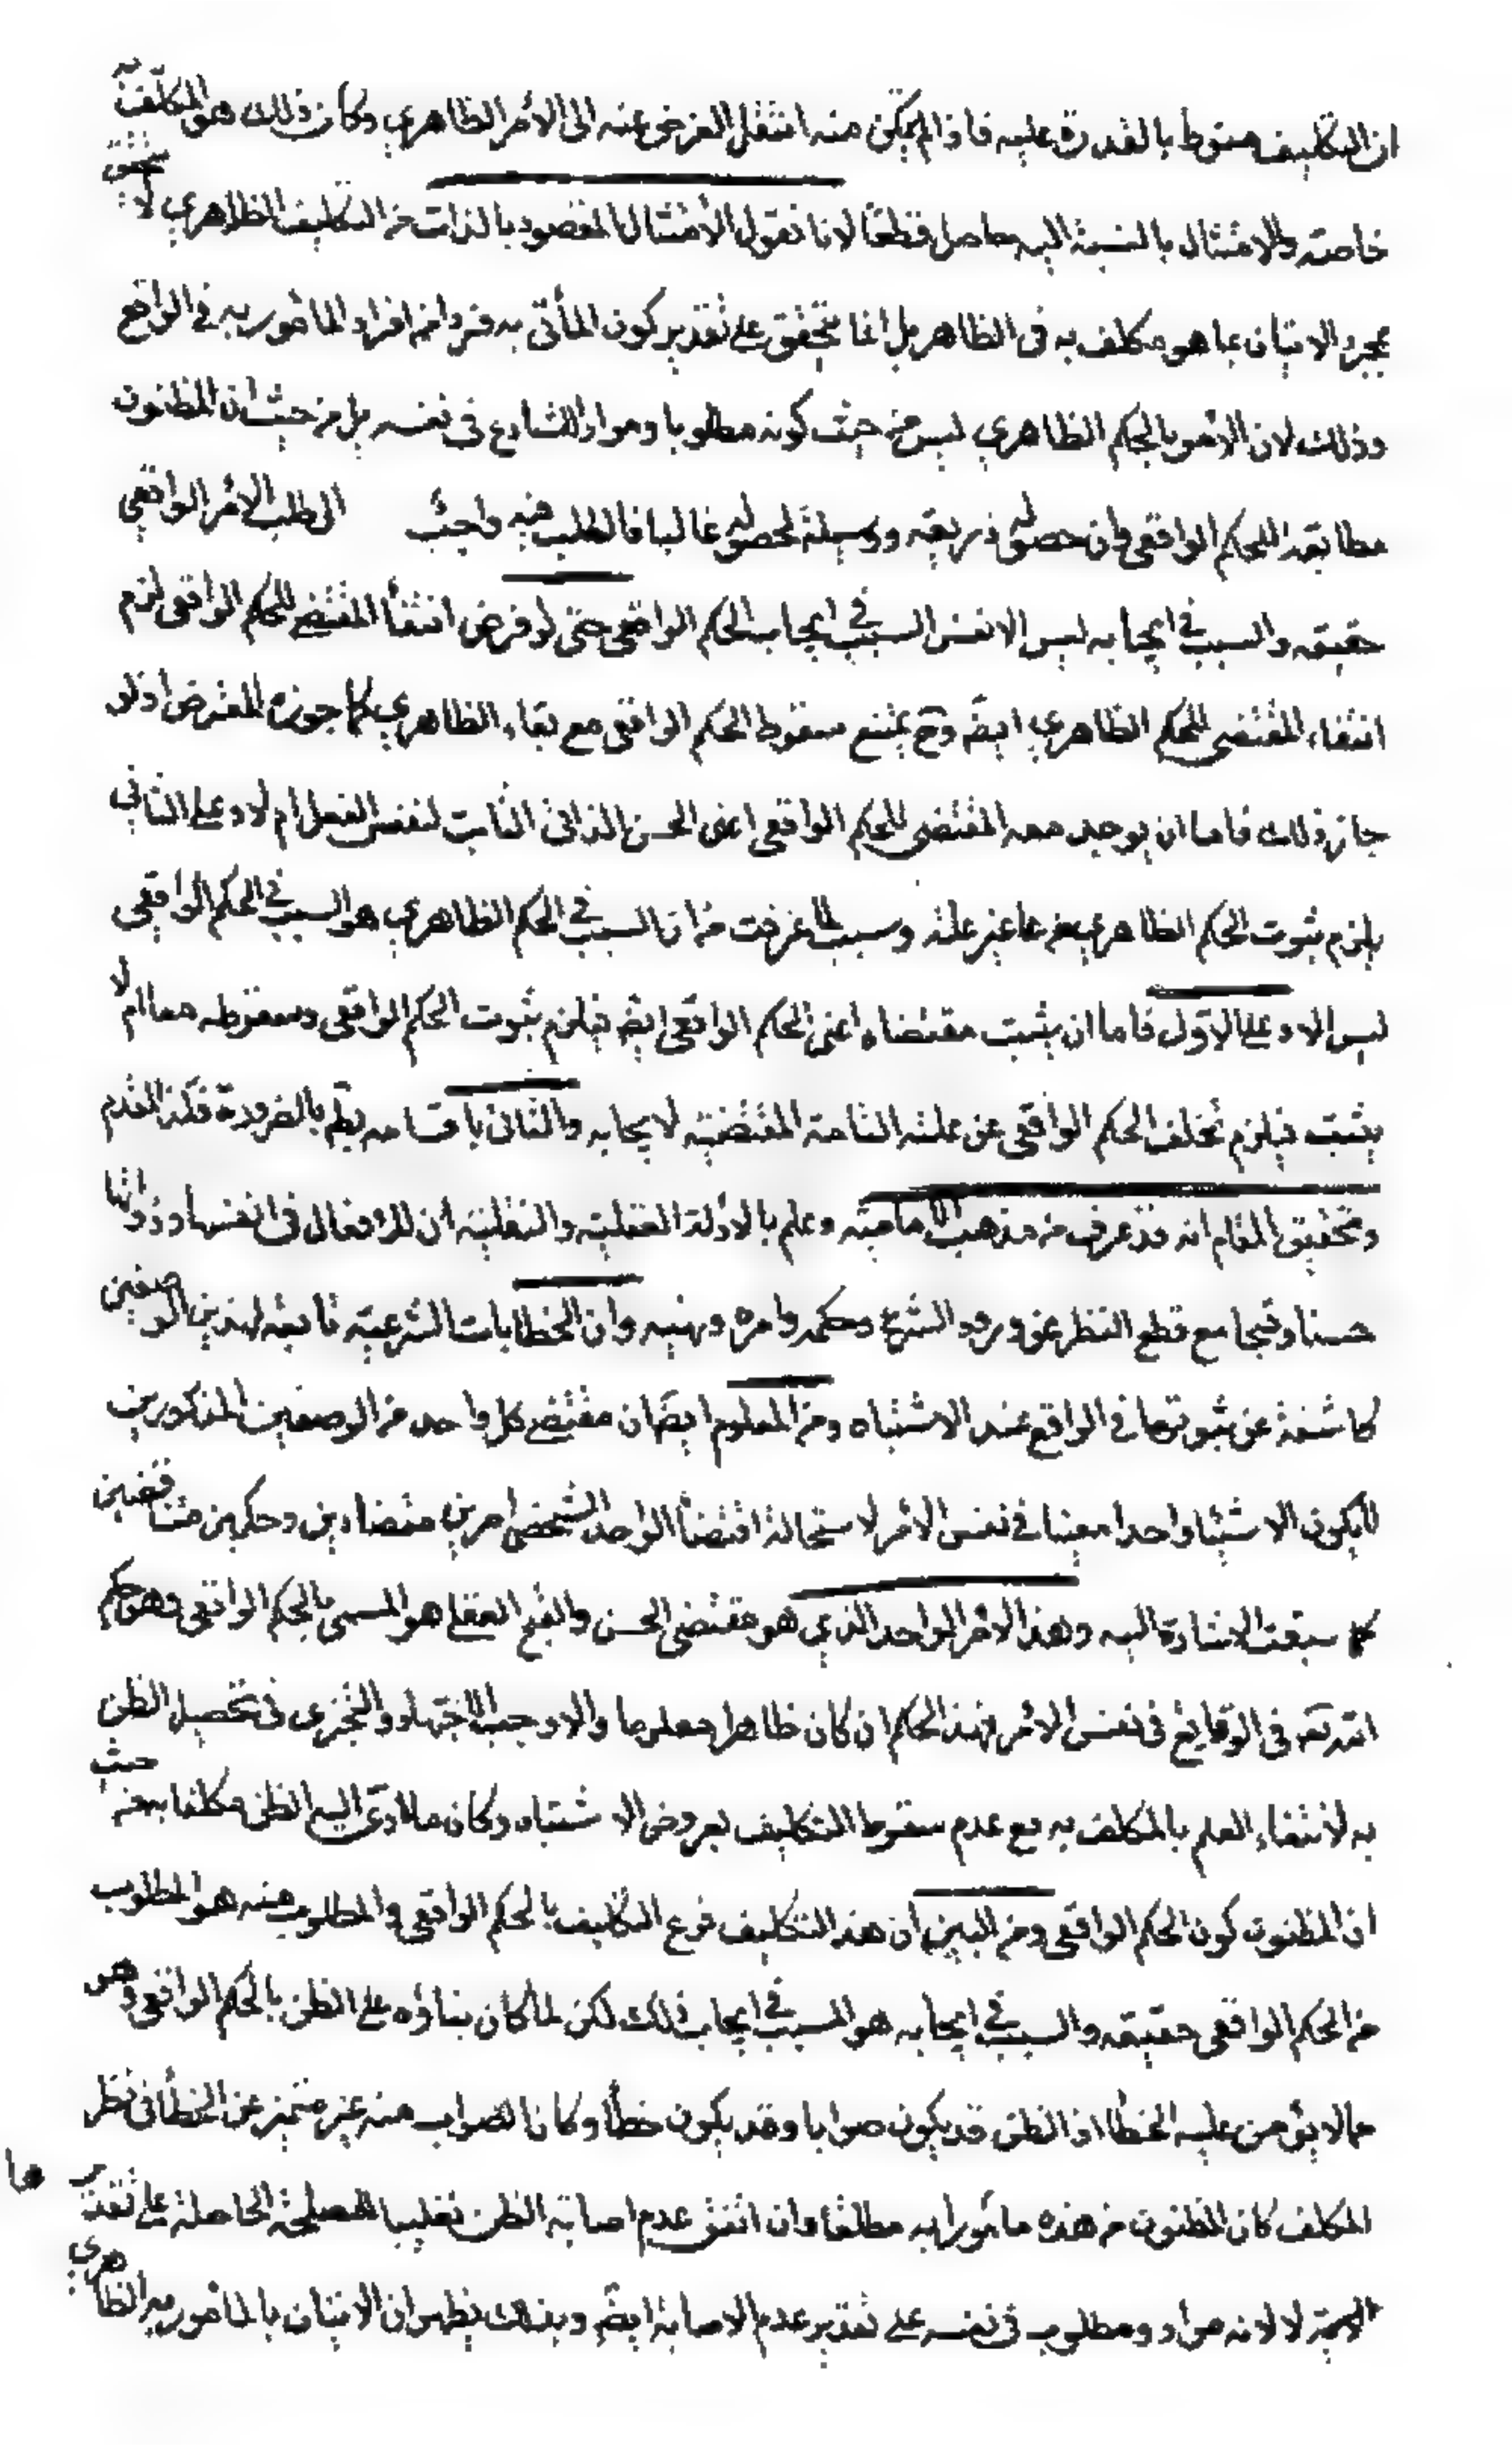 ان التكليف منوط بالقدرة عليه فاذا لم يمكن منه انتقل الغرض عنه الى الأمر الظاهري وكان ذلك هو المكلف به
خاصة والامتثال بالنسبة اليه حاصل قطعا لانا نقول الأمتثال المقصود بالذات من التكليف الظاهري لا يتحقق
بمجرد الاتيان بما هو مكلف به فى الظاهر بل انما يتحقق على تقدير كون المأتى به فردا من افراد المأمور به في الواقع
وذلك لان الأمر بالحكم الظاهري ليس من حيث كونه مطلوبا ومرادا للشارع فى نفسه بل من حيث ان المظنون
مطابقته للحكم الواقعى وان حصوله ذريعة ووسيلة لحصوله غالبا فالطلب فيه الى طلب الأمر الواقعي
حقيقة والسبب في ايجابه ليس الا نفس السبب في ايجاب الحكم الواقعى حتى لو فرض انتفأ المقتضى للحكم الواقعى لزم
انتفاء المقتضى للحكم الظاهري ايضا وح يمتنع سقوط الحكم الواقعى مع بقاء الظاهري كما جوزه المعترض اذ لو
جاز ذلك فاما ان يوجد معه المقتضى للحكم الواقعى اعنى الحسن الذاتى الثابت لنفس الفعل ام لا وعلى الثاني
يلزم ثبوت الحكم الظاهري من غير علة وسبب لما عرفت من ان السبب في الحكم الظاهري هو السبب في الحكم الواقعي
ليس الا وعلى الاول فاما ان يثبت مقتضاه اعنى الحكم الواقعى ايضا فيلزم ثبوت الحكم الواقعى وسقوطه معا ام لا
يثبت فيلزم تخلف الحكم الواقعى عن علته التامة المقتضية لايجابه والتالى باقسامه بط بالضرورة فكذا المقدم
وتحقيق المقام انه قد عرف من مذهب الامامية وعلم بالادلة العقلية والنقلية ان للافعال فى انفسها وذواتها
حسنا وقبحا مع قطع النظر عن ورود الشرع وحكمه وامره ونهيه وان الخطابات الشرعية تابعة لهذين الوصفين
كاشفة عن ثبوتهما في الواقع عند الاشتباه ومن المعلوم ايضا ان مقتضى كل واحد من الوصفين المذكورين
لا يكون الا شيئا واحدا معينا في نفس الأمر لاستحالة اقتضأ الواحد الشخصى امرين متضادين وحكمين متناقضين
كما سبقت الاشارة اليه وهذا الأمر الواحد الذي هو مقتضى الحسن والقبح العقلى هو المسمى بالحكم الواقعى وهو حكم
الله تعه فى الوقايع فى نفس الأمر فهذا الحكم ان كان ظاهرا معلوما والا وجب الاجتهاد والتحرى فى تحصيل الظن
به لانتفاء العلم بالمكلف به مع عدم سقوط التكليف بعروض الاشتباه وكان ما ادى اليه الظن مكلفا به من حيث
ان المظنون كون الحكم الواقعى ومن البين ان هذا التكليف فرع التكليف بالحكم الواقعى والمطلوب منه هو المطلوب
من الحكم الواقعى حقيقة والسبب في ايجابه هو السبب في ايجاب ذلك لكن لما كان بناؤه على الظن بالحكم الواقعى وهو
مما لا يؤمن عليه الخطأ اذ الظن قد يكون صوابا وقد يكون خطأ وكان الصواب منه غير متميز عن الخطأ فى نظر
المكلف كان المظنون من هذه مأمورا به مطلقا وان اتفق عدم اصابة الظن تغليبا للمصلحة الحاصلة على تقديرها
لا لانه مراد ومطلوب فى نفسه على تقدير عدم الاصابة ايضا وبذلك يظهر ان الاتيان بالمأمور به الظاهري